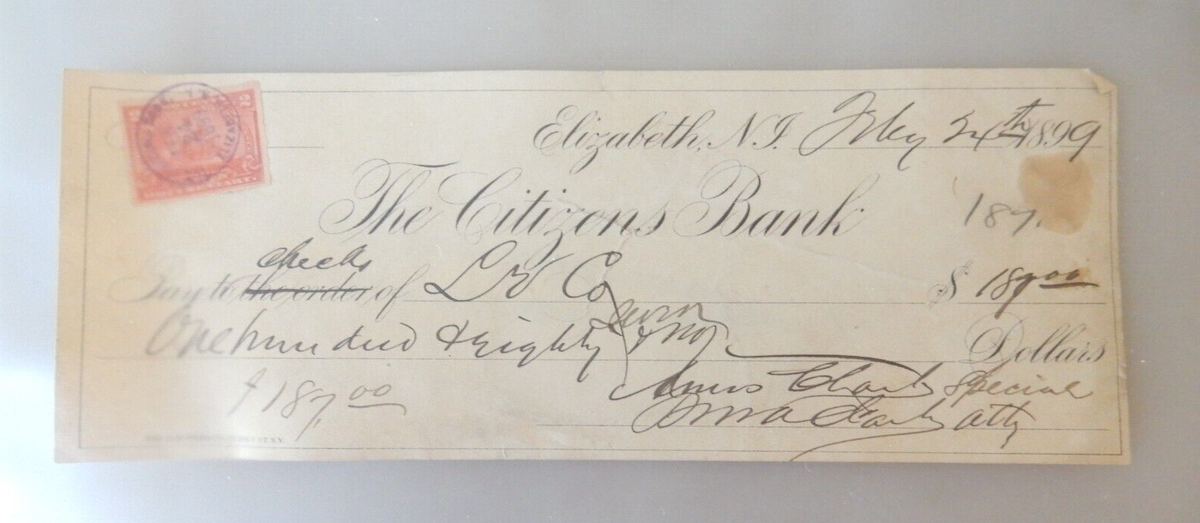 Elizabeth, N.J. 24th 1899
The Citizens Bank
187.
checks
Pay to the order of L V Co $ 187.00
One hundred & Eighty seven & no/
Dollars
Amos Clark Special
$187.00
Clark atty